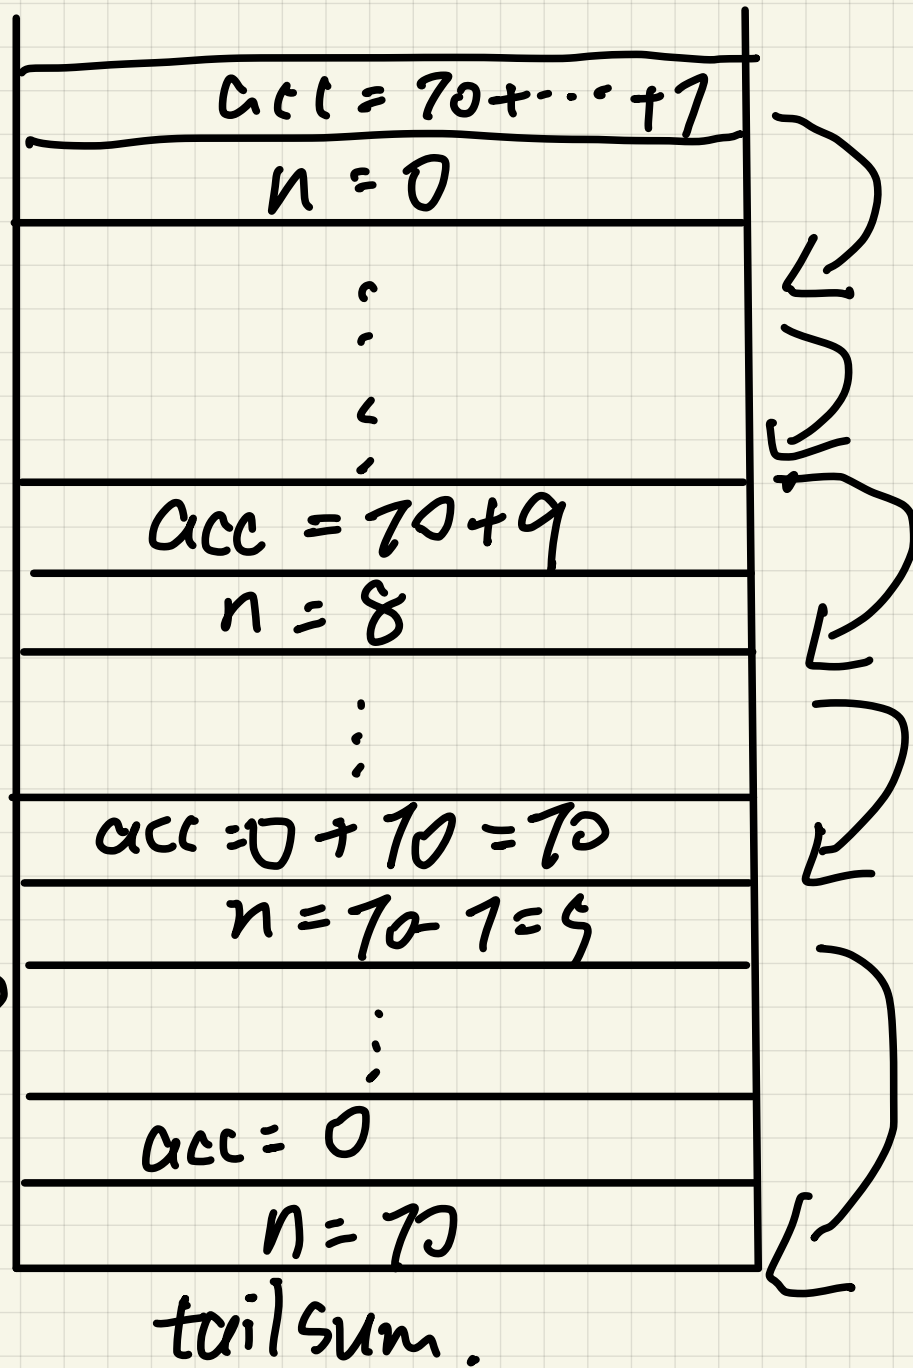 acc = 10+....+1
n = 0
acc = 10+9
n = 8
acc=0+10=10
n=10-1=9
acc= 0
n=10
tailsum.